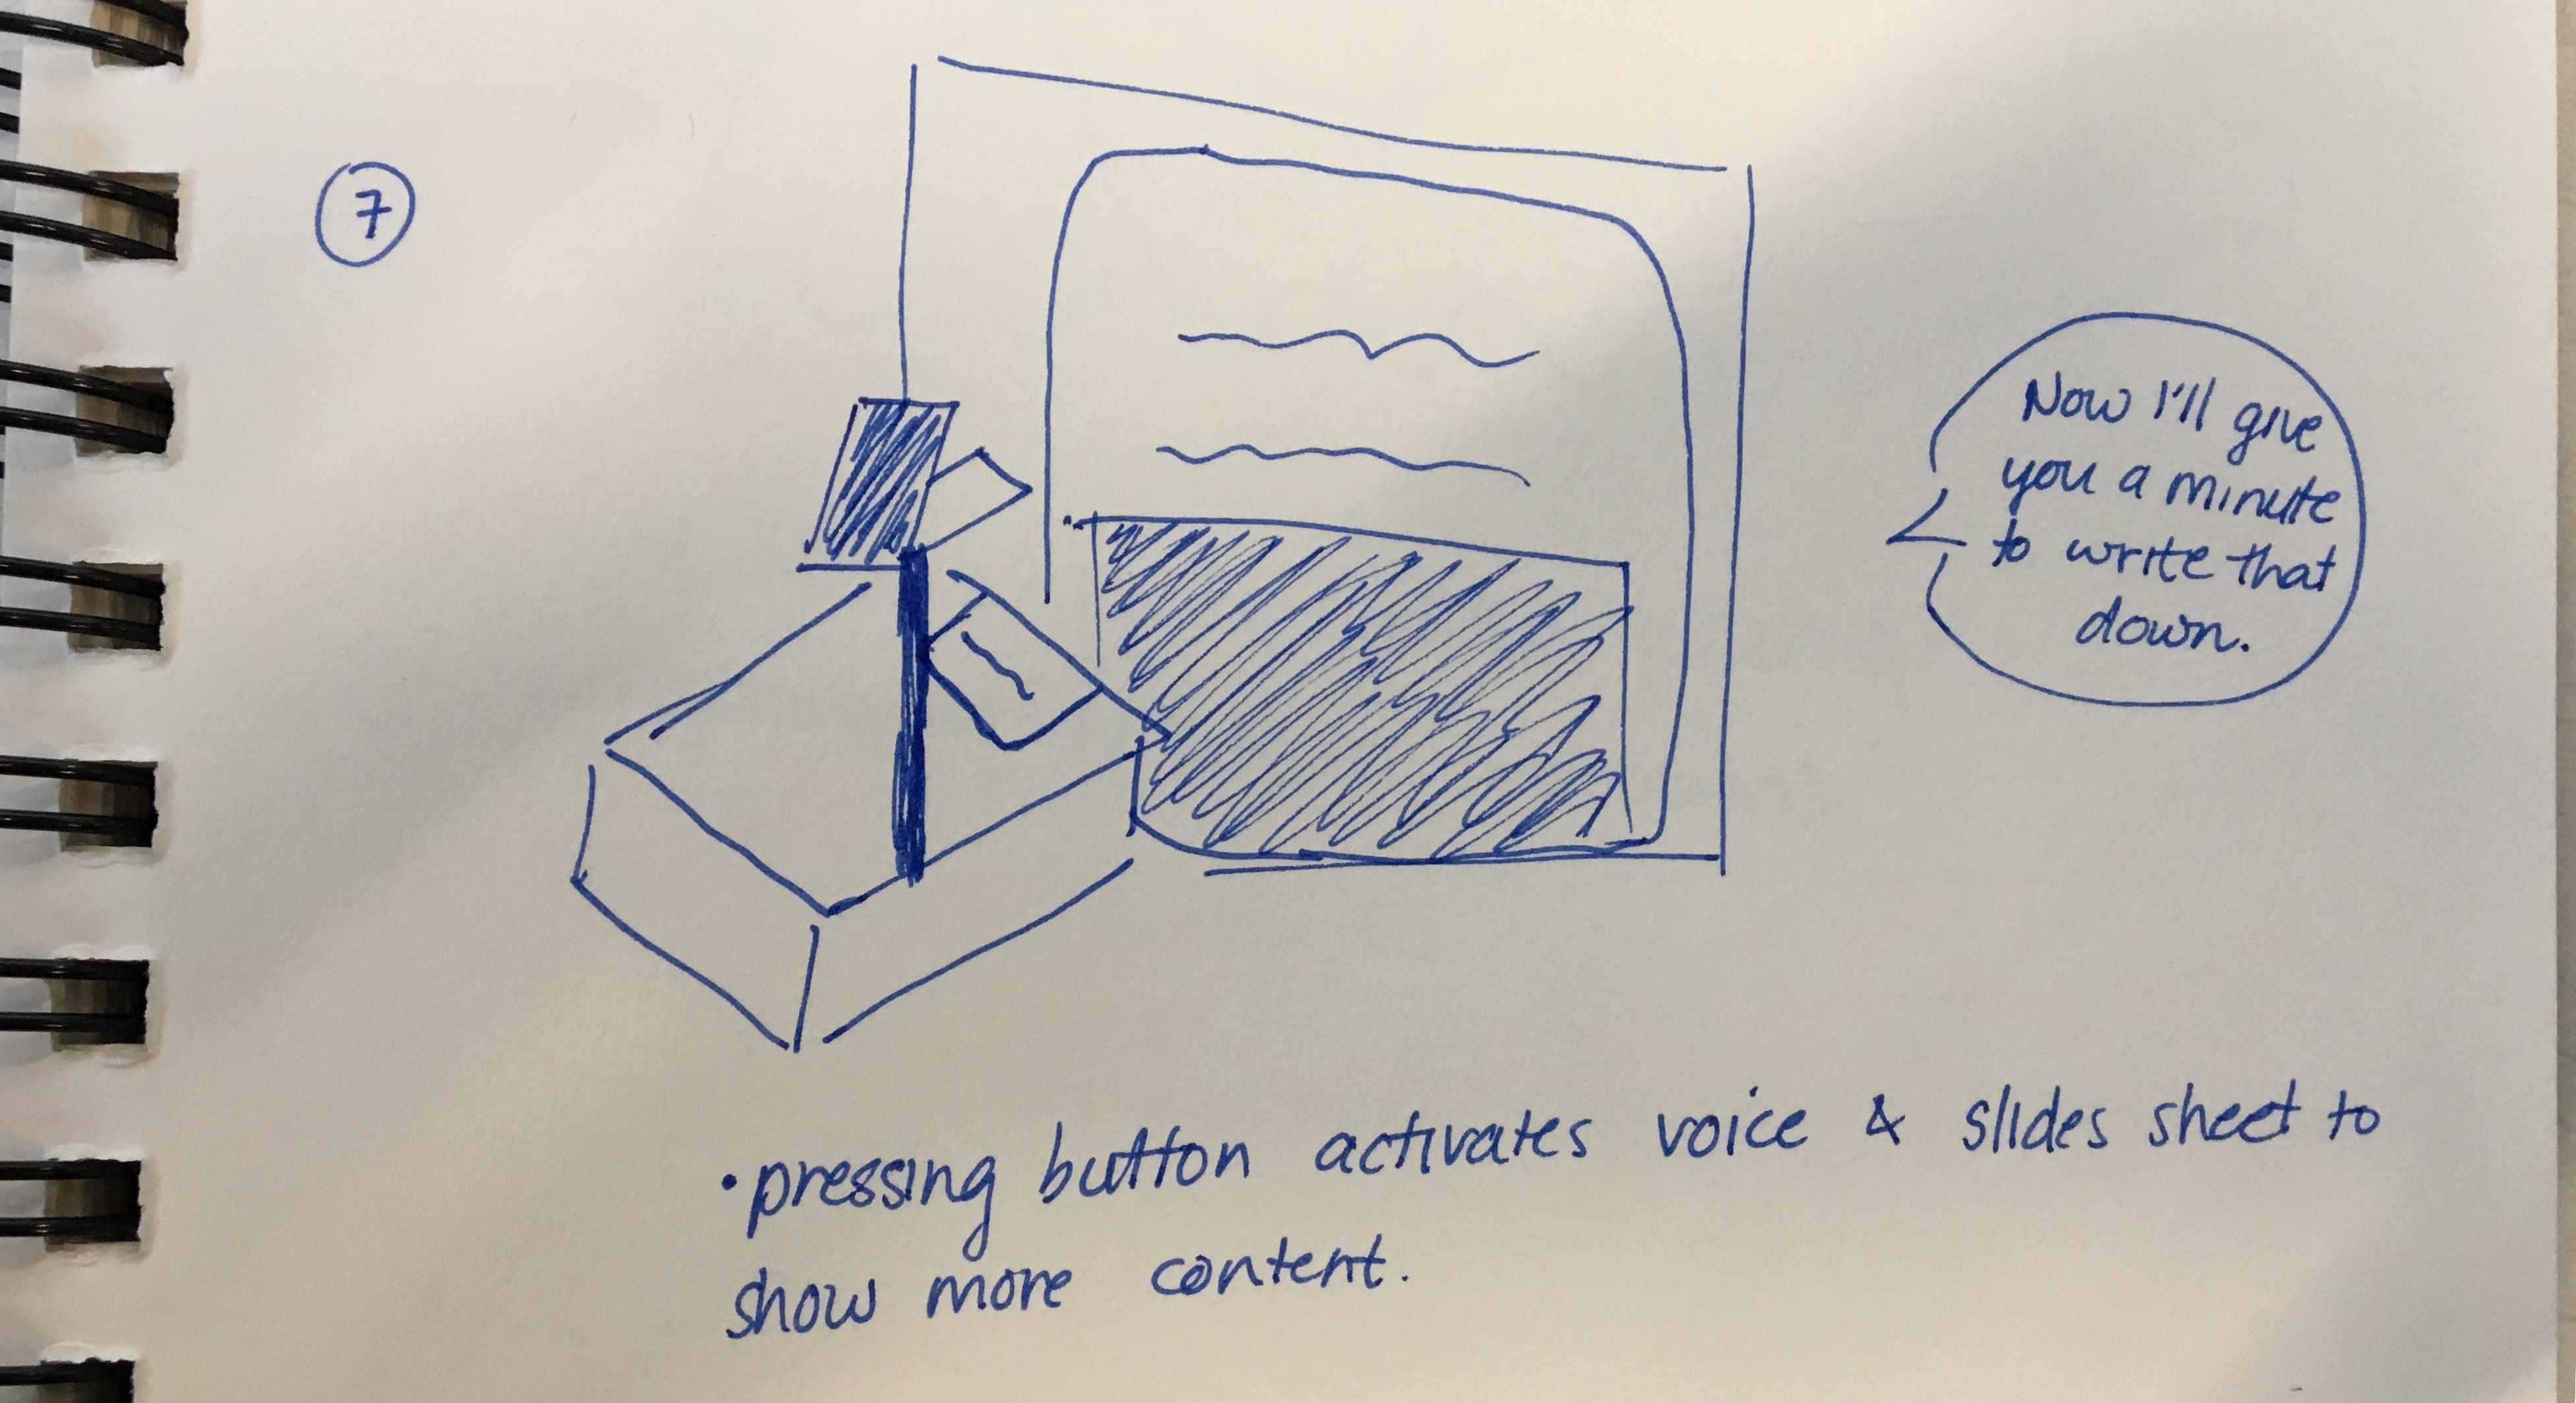 7
Now I'll give
you a minute
to write that
down.
• pressing button activates voice & slides sheet to
show more content.